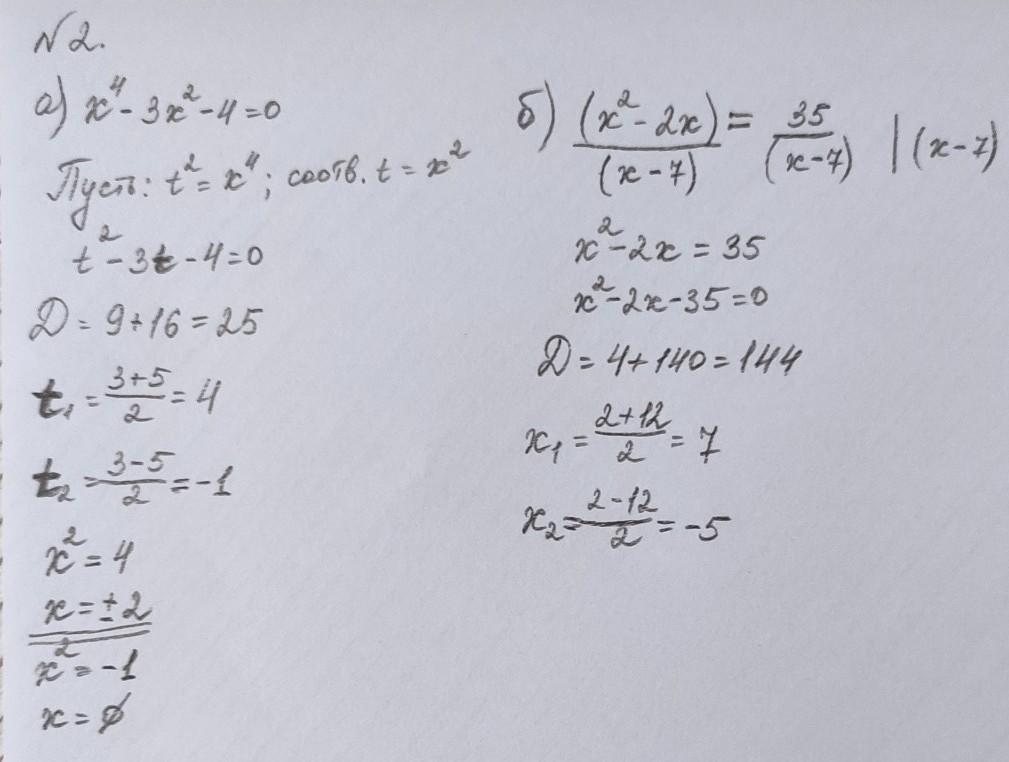 №2.
а) x⁴ - 3x² - 4 = 0
Пусть: t² = x⁴; соотв. t = x²
t² - 3t - 4 = 0
D = 9 + 16 = 25
t₁ = (3+5)/2 = 4
t₂ = (3-5)/2 = -1
x² = 4
x = ±2
x² = -1
x = ∅
б) (x² - 2x)/(x-7) = 35/(x-7) | (x-7)
x² - 2x = 35
x² - 2x - 35 = 0
D = 4 + 140 = 144
x₁ = (2+12)/2 = 7
x₂ = (2-12)/2 = -5